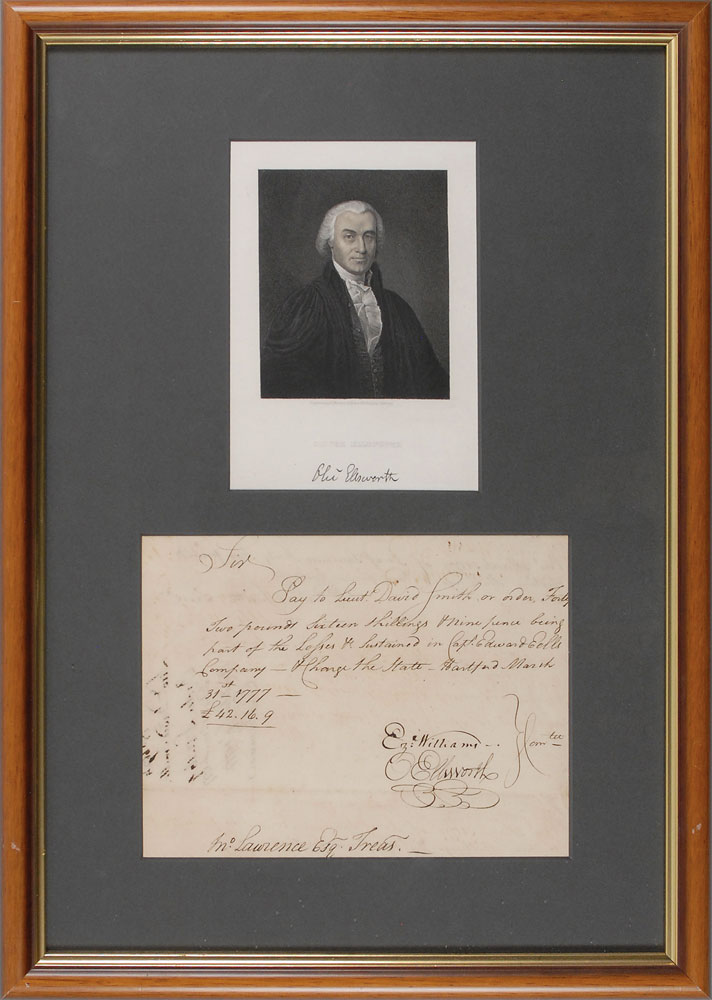 OLIVER ELLSWORTH
Oliʳ Ellsworth
Sir
Pay to Lieut. David Smith or order, Forty
Two pounds Sixteen Shillings & Nine pence being
part of the Losses &c Sustained in Capt. Edward Eells
Company — & Charge the State. Hartford March
31st — 1777 —
£42.16.9
Ez: Williams
O Ellsworth } Comtee
Jno. Lawrence Esqr. Treasr. —